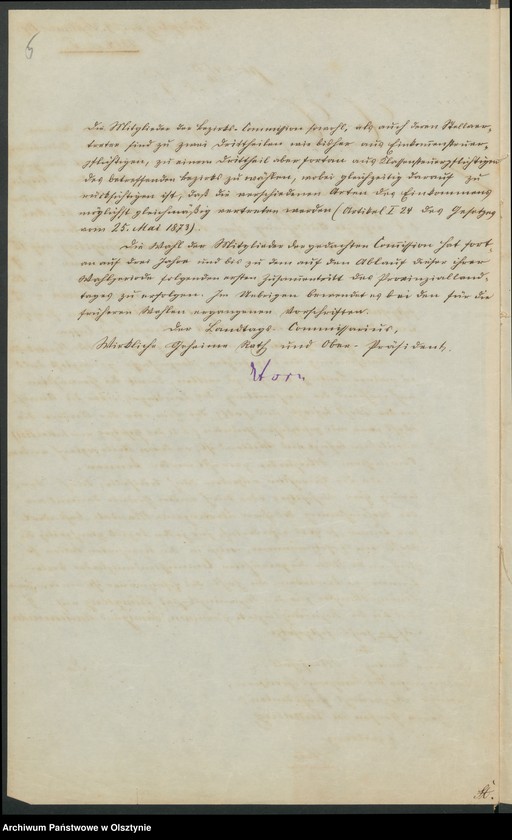 5
Die Mitglieder der Bezirks-Commission sowohl, als auch deren Stellver-
treter sind zu zwei Drittheilen wie bisher aus Einkommensteuer-
pflichtigen, zu einem Drittheil aber fortan aus Klassensteuerpflichtigen
des betreffenden Bezirks zu wählen, wobei gleichzeitig darauf zu
rücksichtigen ist, daß die verschiedenen Arten des Einkommens
möglichst gleichmäßig vertreten werden (Artikel I 24 des Gesetzes
vom 25. Mai 1873).
Die Wahl der Mitglieder der gedachten Commission hat fort-
an auf drei Jahre und bis zu dem auf den Ablauf dieser ihrer
Wahlperiode folgenden ersten Zusammentritt des Provinzialland-
tages zu erfolgen. Im Uebrigen bewendet es bei den für die
früheren Wahlen ergangenen Vorschriften.
Der Landtags-Commissarius,
Wirkliche Geheime Rath und Ober-Präsident,
Horn
St.
Archiwum Państwowe w Olsztynie